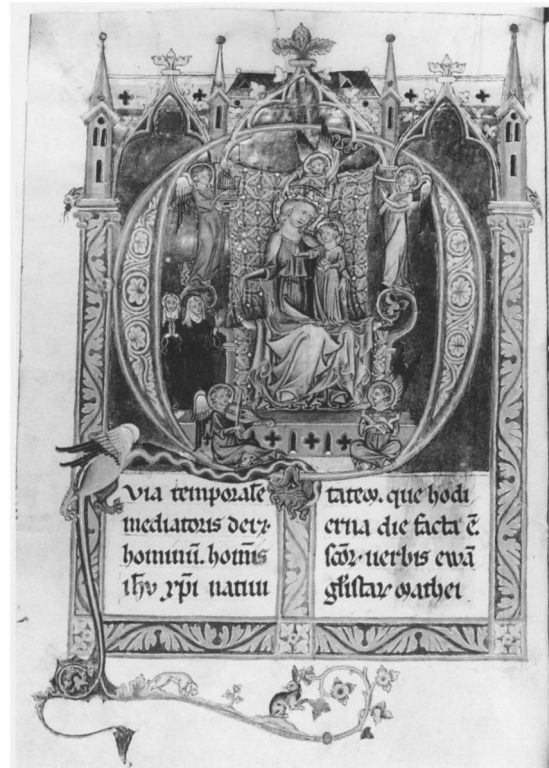 Q
via temporalē
mediatoris dei ⁊
hominū. hoīnis
ihū xp̄i natiui
tatem. que hodi
erna die facta ē.
scōꝝ uerbis ewā
gl̄istaꝝ mathei